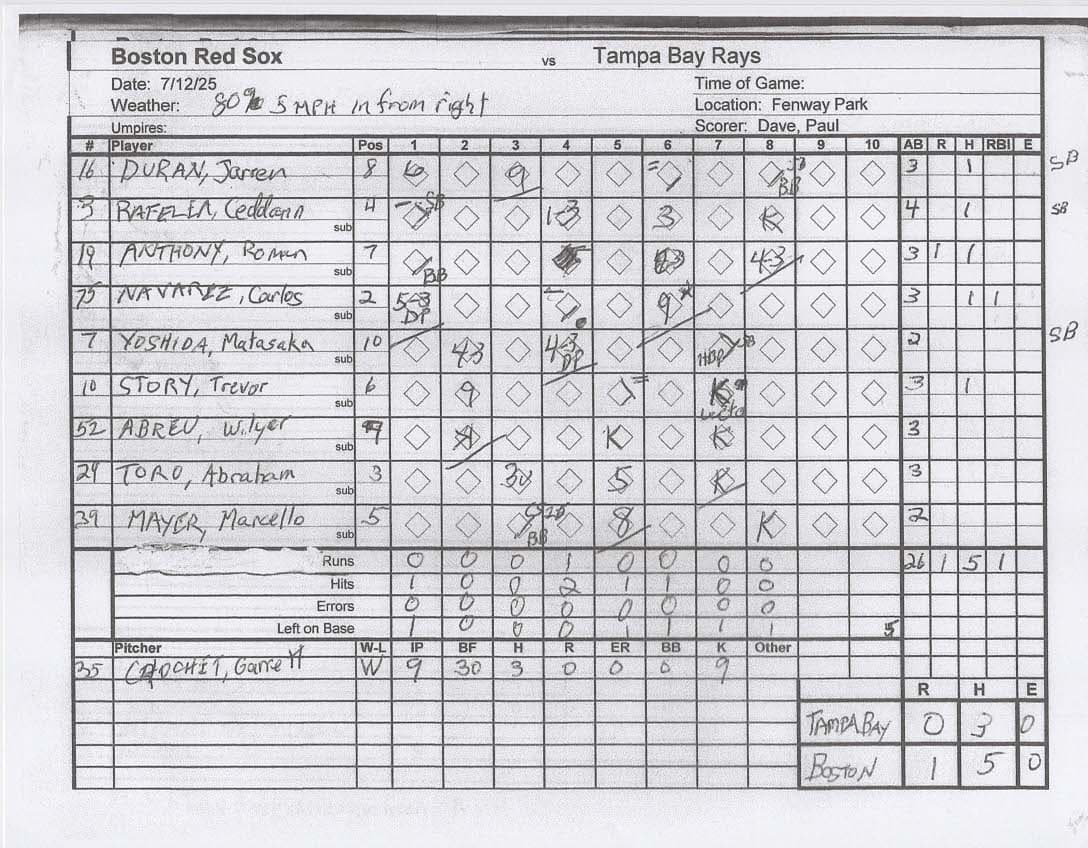 Boston Red Sox vs Tampa Bay Rays
Date: 7/12/25 Time of Game:
Weather: 80° 5 MPH in from right Location: Fenway Park
Umpires: Scorer: Dave, Paul
# Player Pos 1 2 3 4 5 6 7 8 9 10 AB R H RBI E
16 DURAN, Jarren 8 6 9 SB BB 3 1 SB
3 RAFELA, Ceddann 4 SB 1-3 3 K 4 1 SB
sub
19 ANTHONY, Roman 7 BB 63 4-3 3 1 1
sub
75 NAVAREZ, Carlos 2 5-3 DP 9* 3 1 1
sub
7 YOSHIDA, Matasaka 10 43 4-3 DP HBP SB 2 SB
sub
10 STORY, Trevor 6 9 K 3 1
sub
52 ABREU, Wilyer 9 K K K 3
sub
29 TORO, Abraham 3 5 K 3
sub
39 MAYER, Marcello 5 BB 8 K 2
sub
Runs 0 0 0 1 0 0 0 0 26 1 5 1
Hits 1 0 0 2 1 1 0 0
Errors 0 0 0 0 0 0 0 0
Left on Base 1 0 0 0 1 1 1 1 5
Pitcher W-L IP BF H R ER BB K Other
35 CROCHET, Garrett W 9 30 3 0 0 0 9
R H E
TAMPA BAY 0 3 0
BOSTON 1 5 0